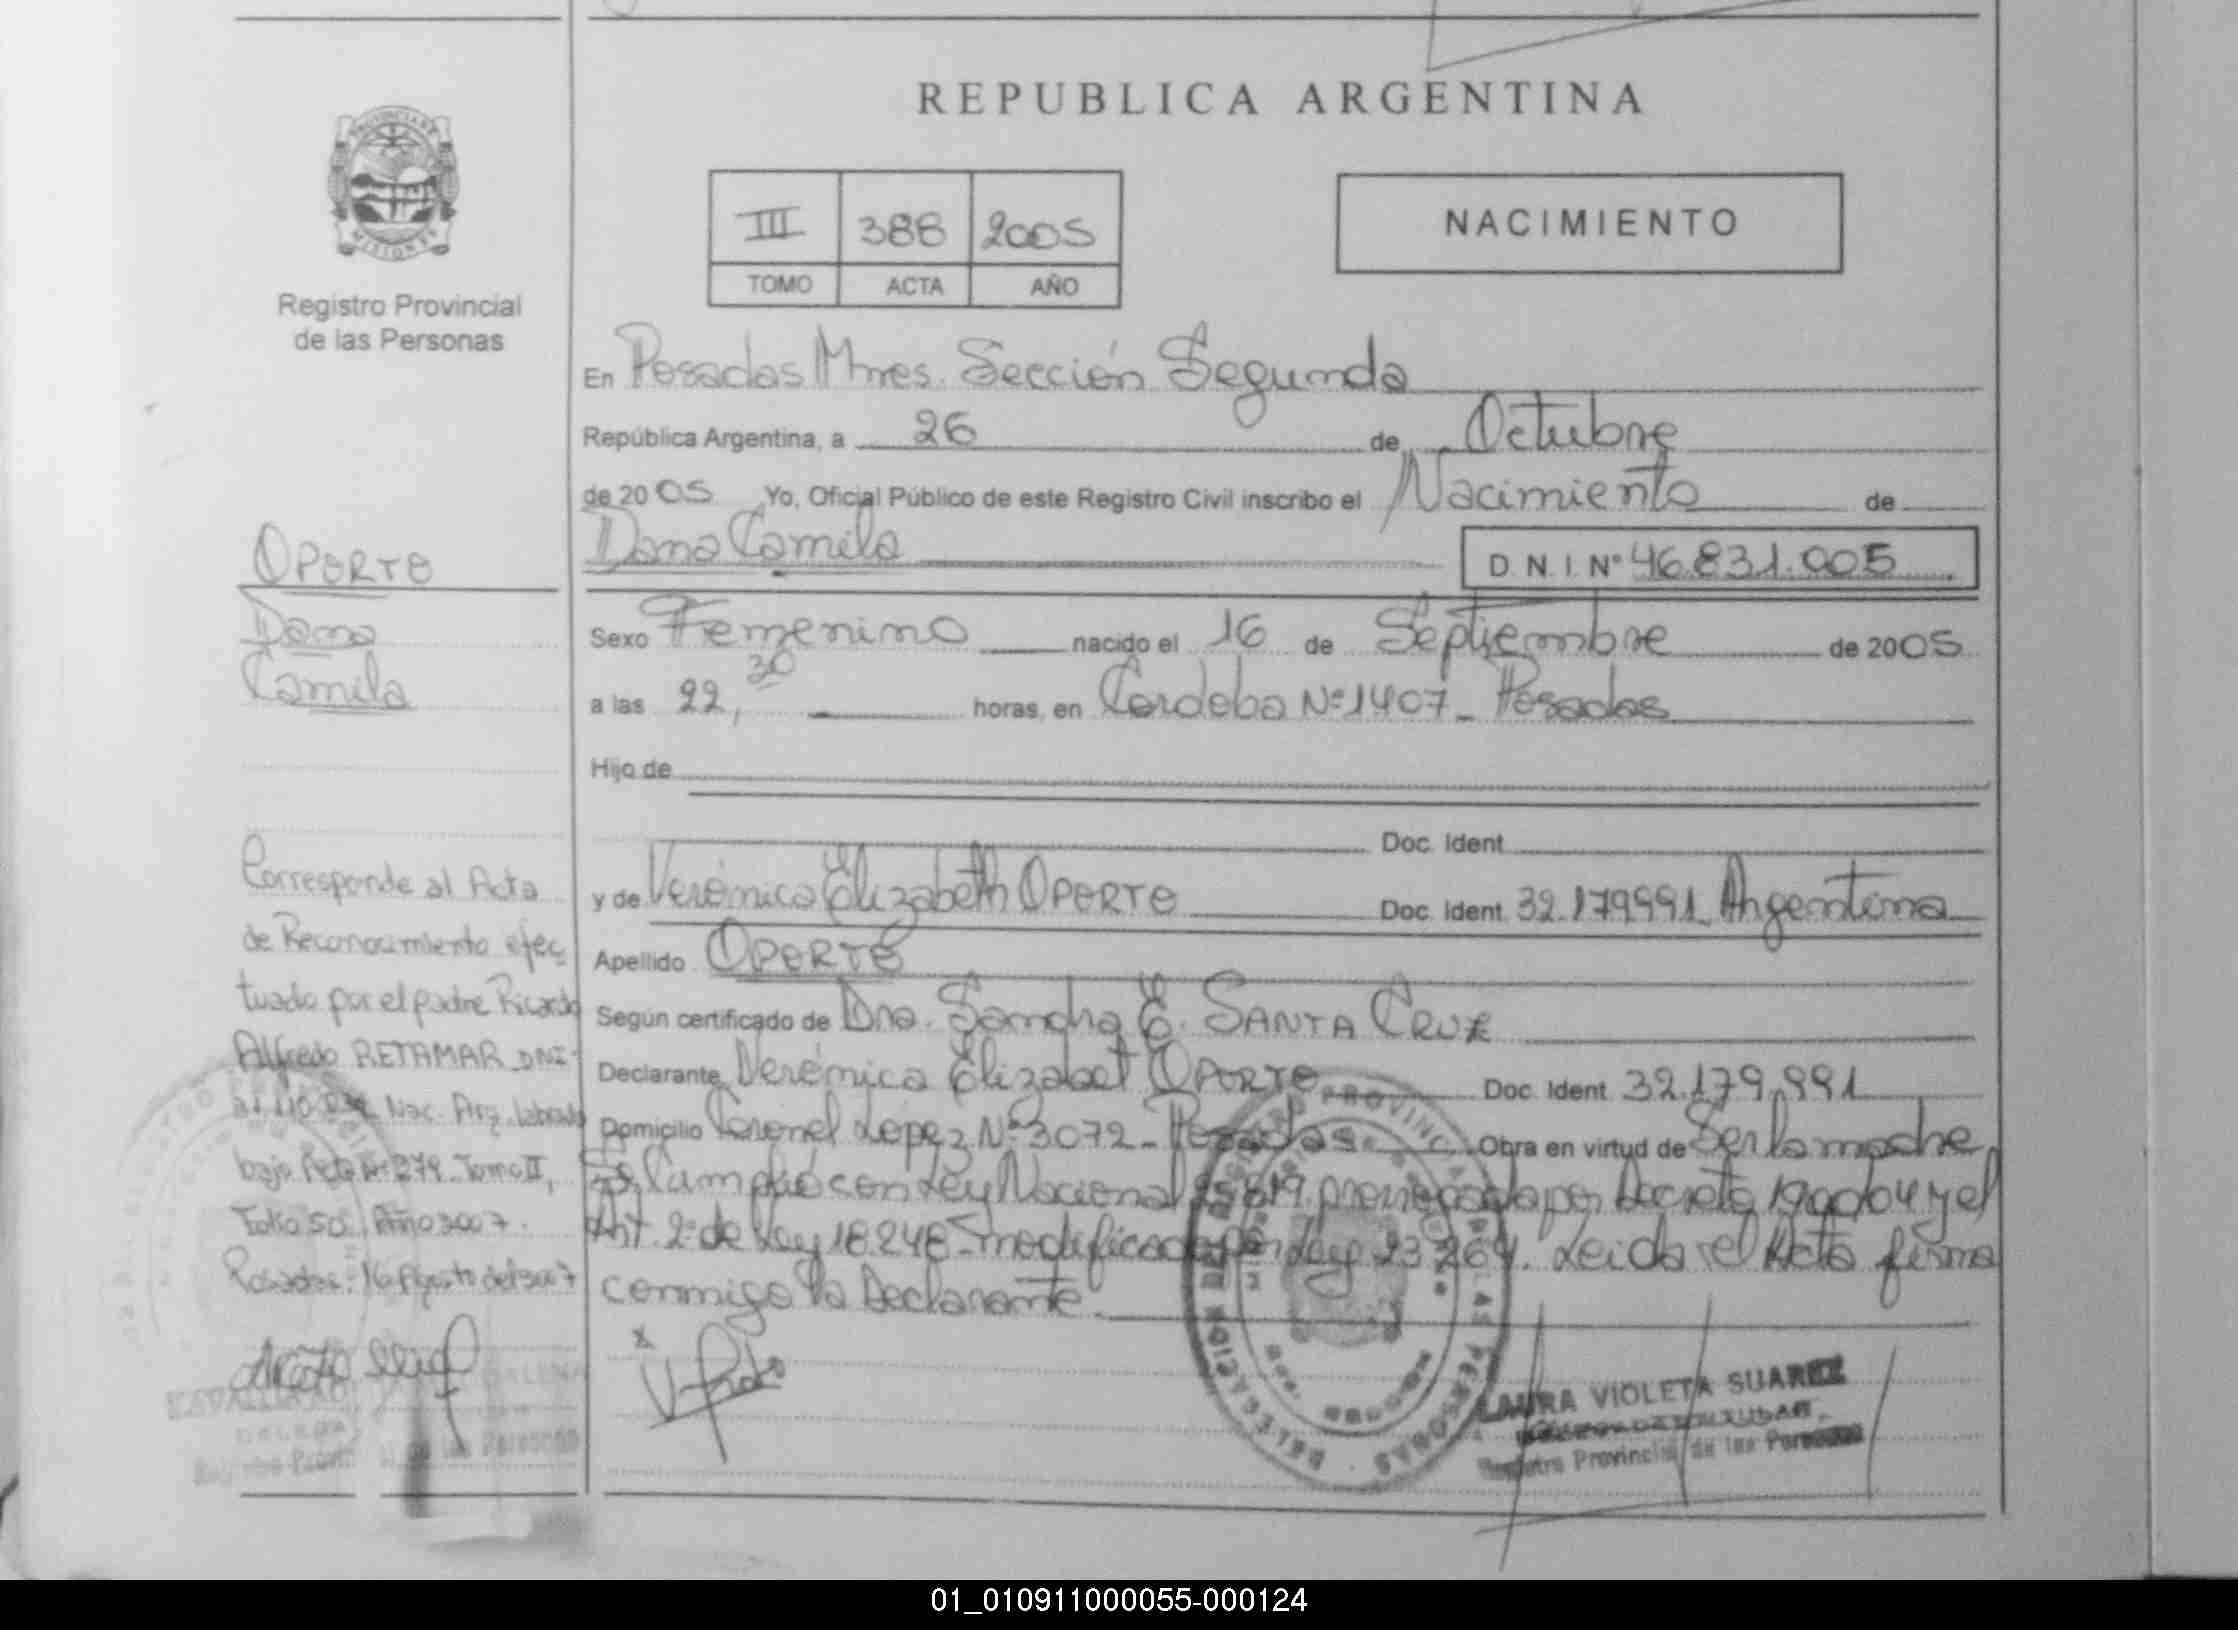 REPUBLICA ARGENTINA
PROVINCIA DE
MISIONES
Registro Provincial
de las Personas
III 388 2005
TOMO ACTA AÑO
NACIMIENTO
En Posadas Mnes. Sección Segunda
República Argentina, a 26 de Octubre
de 2005 Yo, Oficial Público de este Registro Civil inscribo el Nacimiento de
Dana Camila
D.N.I. Nº 46.831.005
OPORTO
Dana
Camila
Sexo Femenino nacido el 16 de Septiembre de 2005
a las 22,30 horas, en Cordoba Nº 1407_ Posadas
Hijo de
Doc. Ident.
y de Verónica Elizabeth OPORTO Doc. Ident. 32.179991_ Argentina
Apellido OPORTO
Según certificado de Dra. Sandra E. SANTA CRUZ
Declarante Verónica Elizabet OPORTO Doc. Ident. 32.179.991
Domicilio Coronel Lopez Nº 3072_ Posadas Obra en virtud de Ser la madre
Se Cumplió con Ley Nacional por Decreto y el
Art. 2º de Ley 18.248_ modificada por Ley 23.264. Leida el Acta firma
conmigo la Declarante.
Corresponde al Acta
de Reconocimiento efec
tuado por el padre Ricardo
Alfredo RETAMAR DNI
Nac. Arg. labrado
bajo Acta Nº 279_ Tomo II,
Folio 50
Posadas. 16 Agosto del
x
LAURA VIOLETA SUAREZ
Registro Provincial de las Personas
Registro Provincial de las Personas
01_010911000055-000124